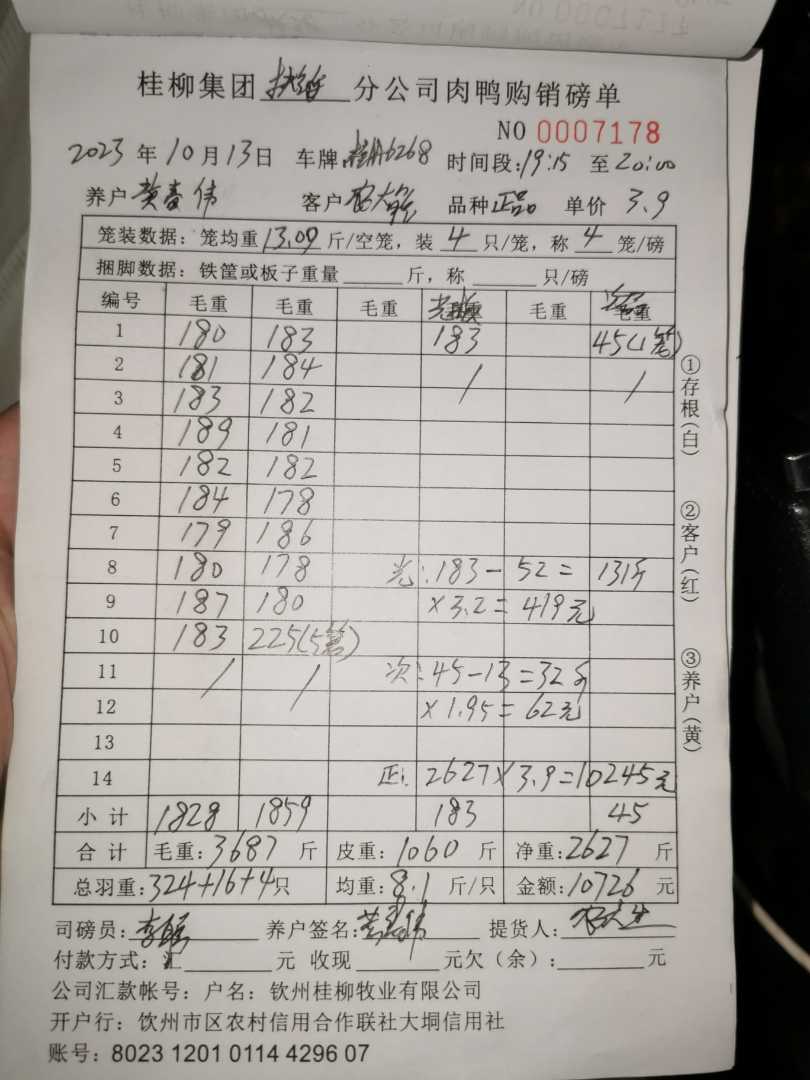 桂柳集团 分公司肉鸭购销磅单
NO 0007178
2023 年 10 月 13 日 车牌: 6268 时间段: 19:15 至 20:00
养户 黄春伟 客户 农大 品种 正品 单价 3.9
笼装数据: 笼均重 13.09 斤/空笼, 装 4 只/笼, 称 4 笼/磅
捆脚数据: 铁筐或板子重量 斤, 称 只/磅
编号 毛重 毛重 毛重 光 毛重 次 毛重
1 180 183 183 45(1笼)
2 181 184 / /
3 183 182
4 189 181
5 182 182
6 184 178
7 179 186
8 180 178 光: 183 - 52 = 131斤
9 187 180 × 3.2 = 419元
10 183 225(5笼)
11 / / 次: 45 - 13 = 32斤
12 × 1.95 = 62元
13
14 正: 2627 × 3.9 = 10245元
小计 1828 1859 183 45
合计 毛重: 3687 斤 皮重: 1060 斤 净重: 2627 斤
总羽重: 324+16+4只 均重: 8.1 斤/只 金额: 10726 元
司磅员: 养户签名: 黄春伟 提货人:
付款方式: 汇 元 收现 元欠(余): 元
公司汇款帐号: 户名: 钦州桂柳牧业有限公司
开户行: 钦州市区农村信用合作联社大垌信用社
账号: 8023 1201 0114 4296 07
①存根(白)
②客户(红)
③养户(黄)